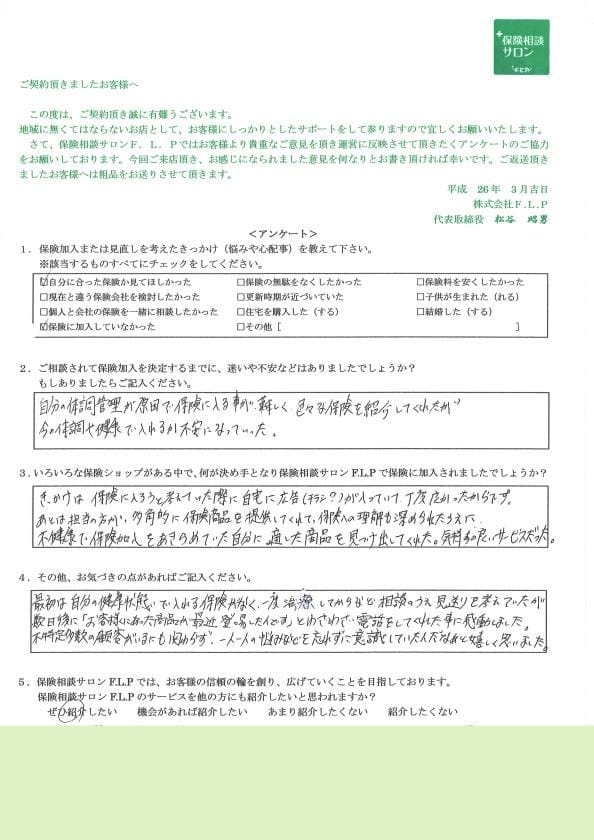 保険相談
サロン
F.L.P
ご契約頂きましたお客様へ
この度は、ご契約頂き誠に有難うございます。
地域に無くてはならないお店として、お客様にしっかりとしたサポートをして参りますので宜しくお願いいたします。
さて、保険相談サロンF．L．Pではお客様より貴重なご意見を頂き運営に反映させて頂きたくアンケートのご協力
をお願いしております。今回ご来店頂き、お感じになられました意見を何なりとお書き頂ければ幸いです。ご返送頂き
ましたお客様へは粗品をお送りさせて頂きます。
平成 26年 3月吉日
株式会社F.L.P
代表取締役 松谷 昭男
＜アンケート＞
１．保険加入または見直しを考えたきっかけ（悩みや心配事）を教えて下さい。
※該当するものすべてにチェックをしてください。
☑自分に合った保険か見てほしかった □保険の無駄をなくしたかった □保険料を安くしたかった
□現在と違う保険会社を検討したかった □更新時期が近づいていた □子供が生まれた（れる）
□個人と会社の保険を一緒に相談したかった □住宅を購入した（する） □結婚した（する）
☑保険に加入していなかった □その他［ ］
２．ご相談されて保険加入を決定するまでに、迷いや不安などはありましたでしょうか？
もしありましたらご記入ください。
自分の体調管理が原因で保険に入る事が難しく、色々な保険を紹介してくれたが
今の体調や健康で入れるか不安になっていった。
３．いろいろな保険ショップがある中で、何が決め手となり保険相談サロンF.L.Pで保険に加入されましたでしょうか？
きっかけは 保険に入ろうと考えていた際に自宅に広告(チラシ?)が入っていて、丁度良かったからです。
あとは担当の方が、多角的に保険商品を提供してくれて、保険への理解も深められたうえに、
不健康で保険加入をあきらめていた自分に適した商品を見つけ出してくれた。気持の良いサービスだった。
４．その他、お気づきの点があればご記入ください。
最初は自分の健康状態で入れる保険がなく、一度治療してからなど相談のうえ見送りを考えていたが
数日後に「お客様にあった商品が最近登場したんです」とわざわざ電話をしてくれた事に感動しました。
不特定多数の顧客がいるにも関わらず、一人一人の性格などを忘れずに意識していたんだなあと嬉しく思いました。
５．保険相談サロンF.L.Pでは、お客様の信頼の輪を創り、広げていくことを目指しております。
保険相談サロンF.L.Pのサービスを他の方にも紹介したいと思われますか？
ぜひ紹介したい 機会があれば紹介したい あまり紹介したくない 紹介したくない